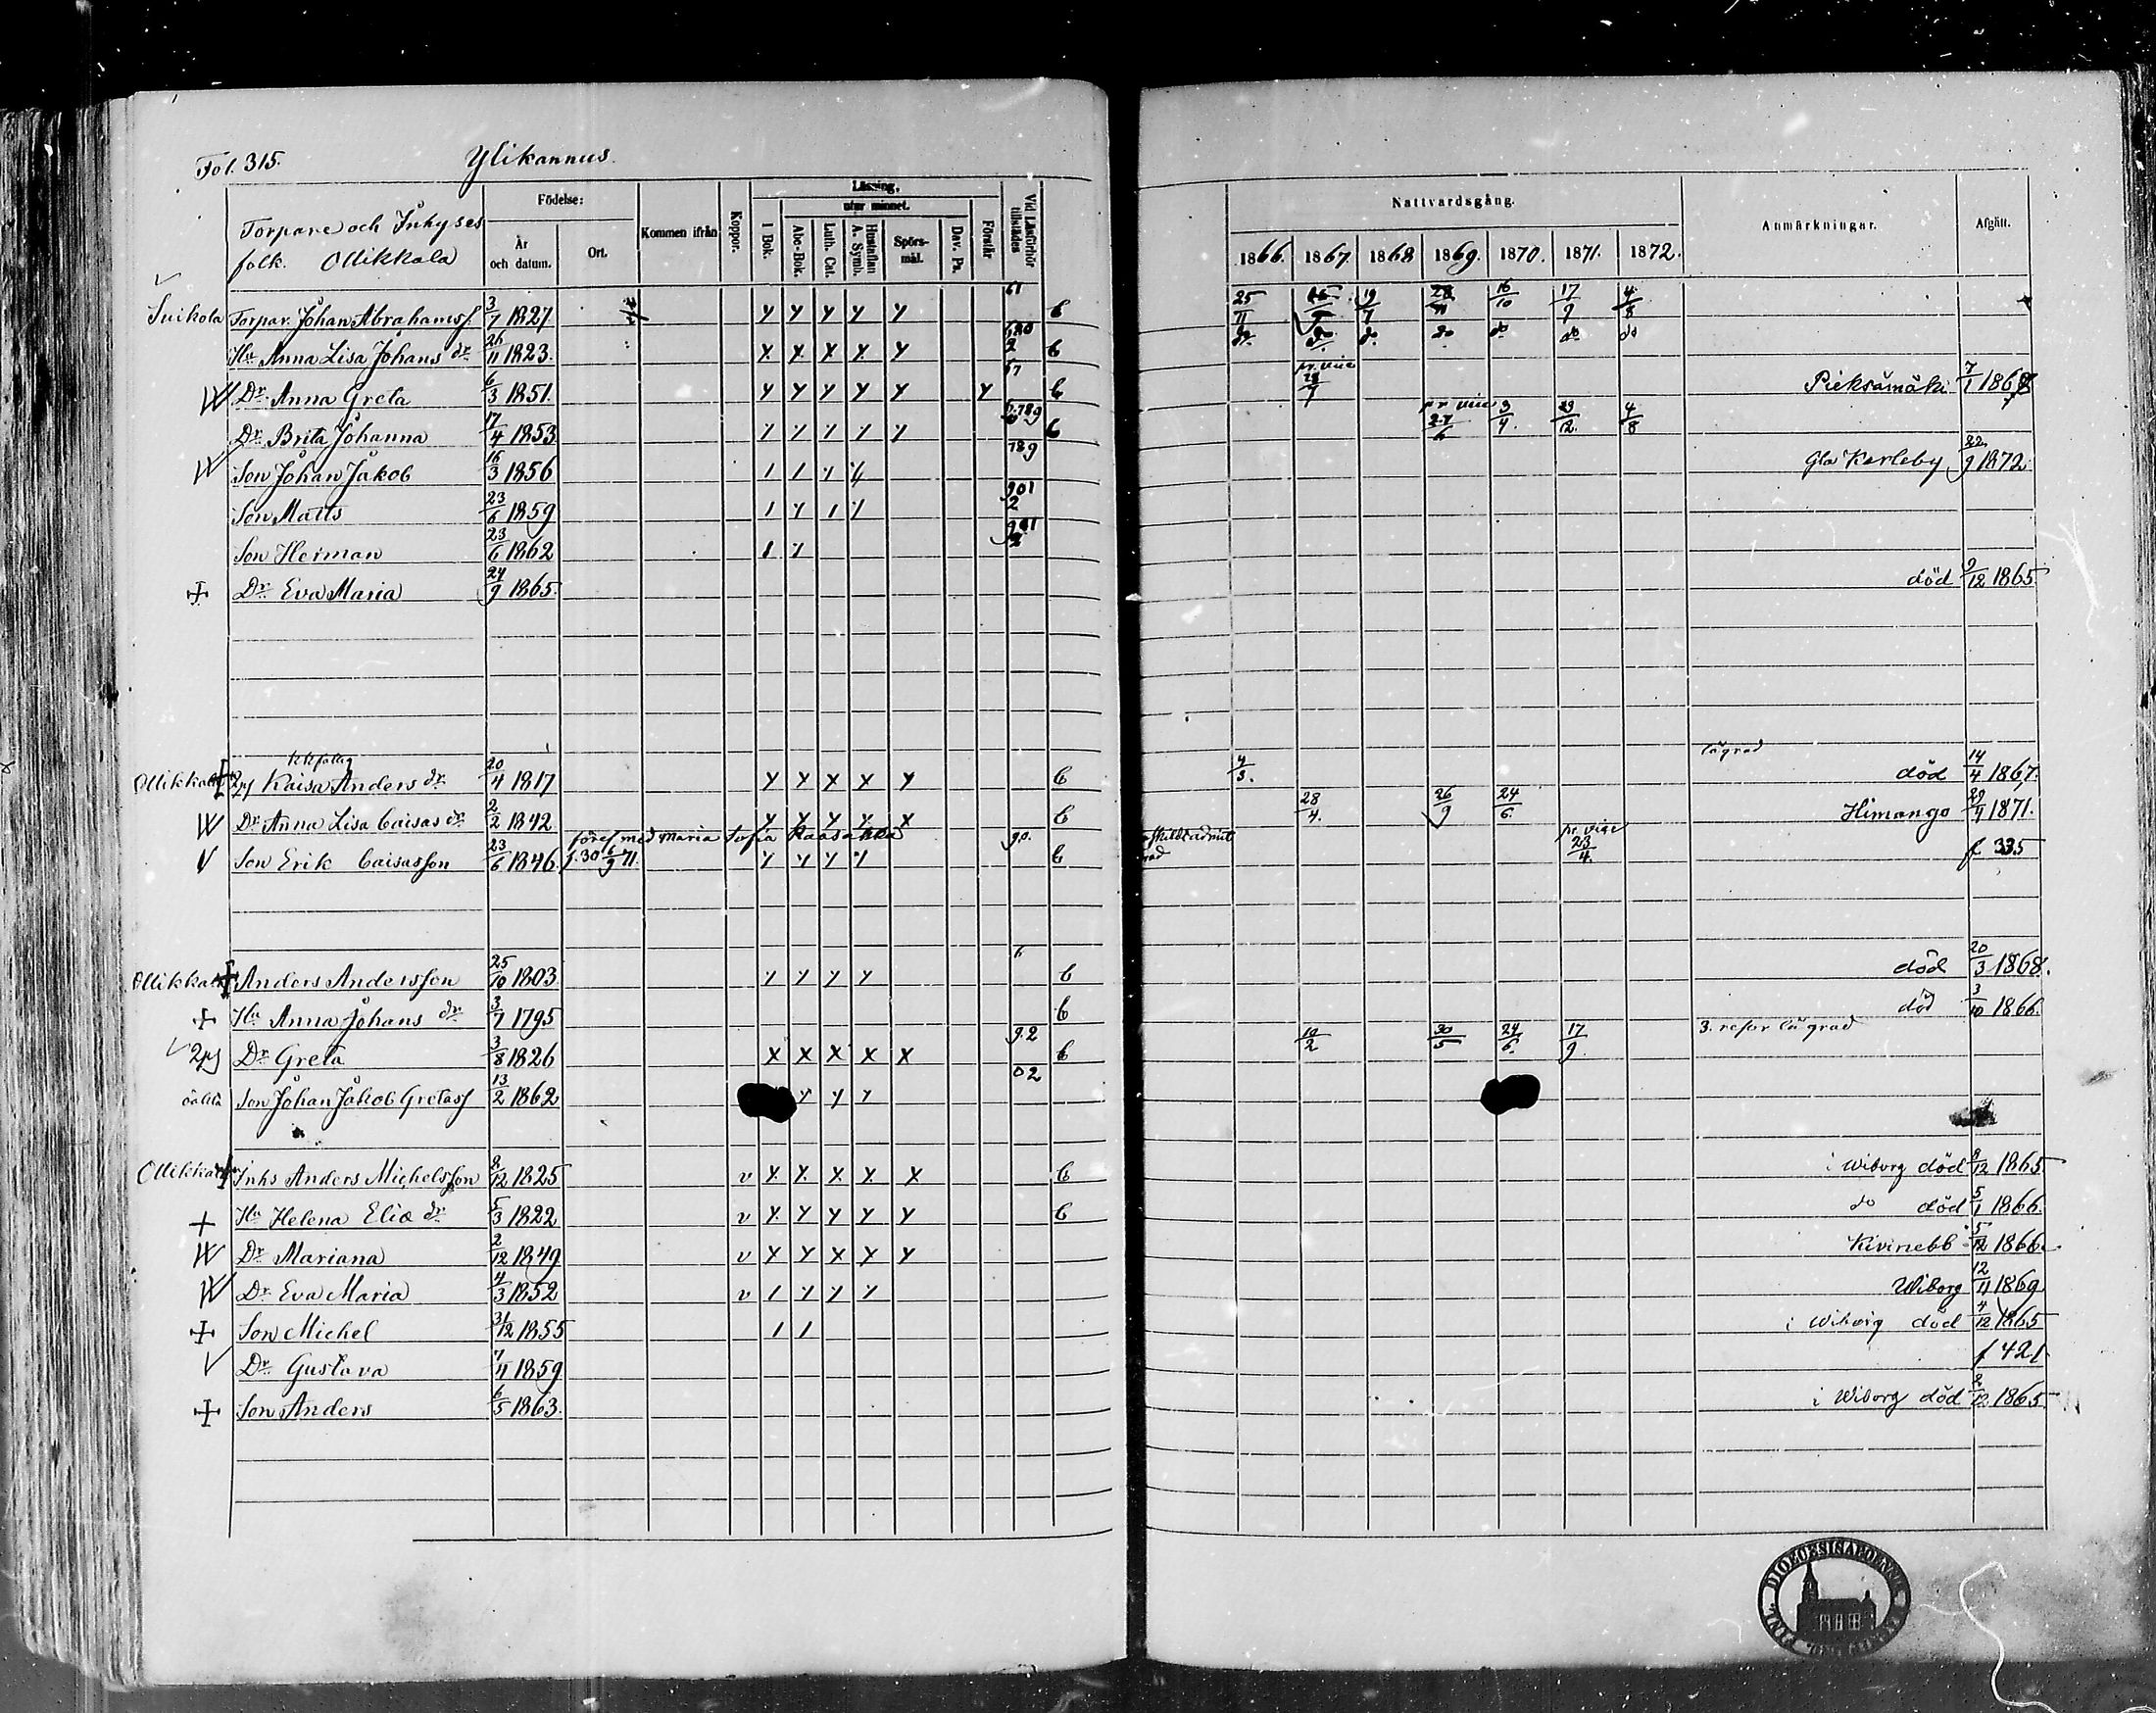 Fol. 315. Ylikannus.
Torpare och Inhyses folk. Ollikkala
Födelse: År och datum. Ort. Kommen ifrån Koppor. Läsning, utur minnet. I Bok. Abc-Bok. Luth. Cat. Hustaflan A. Symb. Spörsmål. Dav. Ps. Förstår Vid Läsförhör tillstädes
Nattvardsgång. 1866. 1867. 1868 1869. 1870. 1871. 1872. Anmärkningar. Afgått.
Suikola Torpar. Johan Abrahamss. 3/7 1827 y y y y y 61 b 25/11 19/7 16/10 17/9 4/8
Hu Anna Lisa Johans dr 26/11 1823. x x x x y b do do do do do do do
W Dr Anna Greta 6/3 1851. y y y y y y 67 b pr. vice Pieksämäki 7/1 1868
Dr Brita Johanna 17/4 1853 b pr vice 27/6 3/4. 4/8
W Son Johan Jakob 16/3 1856 789 Gla Karleby 22/9 1872.
Son Matts 23/6 1859 901 2
Son Herman 23/6 1862
+ Dr Eva Maria 24/9 1865. död 9/12 1865
Ollikkala + Kaisa Anders dr 20/4 1817 y y x x y b 4/3. död 14/4 1867.
W Dr Anna Lisa Caisas dr 2/2 1842 b 28/4. 26/9 24/6. Himango 29/4 1871.
föres. med Maria Sofia
V Son Erik Caisasson 23/6 1846 f. 30 6/9 71. 90. b pr. vice 23/4. f 335
Ollikkala + Anders Andersson 25/10 1803 6 b död 20/3 1868.
+ Hu Anna Johans dr 3/7 1795 b död 3/10 1866.
Dr Greta 3/8 1826 x x x x x 92 b 30/5 24/6. 17/9. 3. resor
Son Johan Jakob Gretass 13/2 1862 y y y 02
Ollikkala + Inhs Anders Michelsson 8/12 1825 v x x x x x b i Wiborg död 8/12 1865
+ Hu Helena Eliæ dr 5/3 1822 v y y y y y b do död 5/1 1866.
W Dr Mariana 2/12 1849 v x x x x y Kivinebb 5/12 1866.
W Dr Eva Maria 4/3 1852 v Wiborg 12/11 1869
+ Son Michel 31/12 1855 i Wiborg död 4/12 1865
V Dr Gustava 7/11 1859. f 421
+ Son Anders 6/5 1863. i Wiborg död 2/12 1865